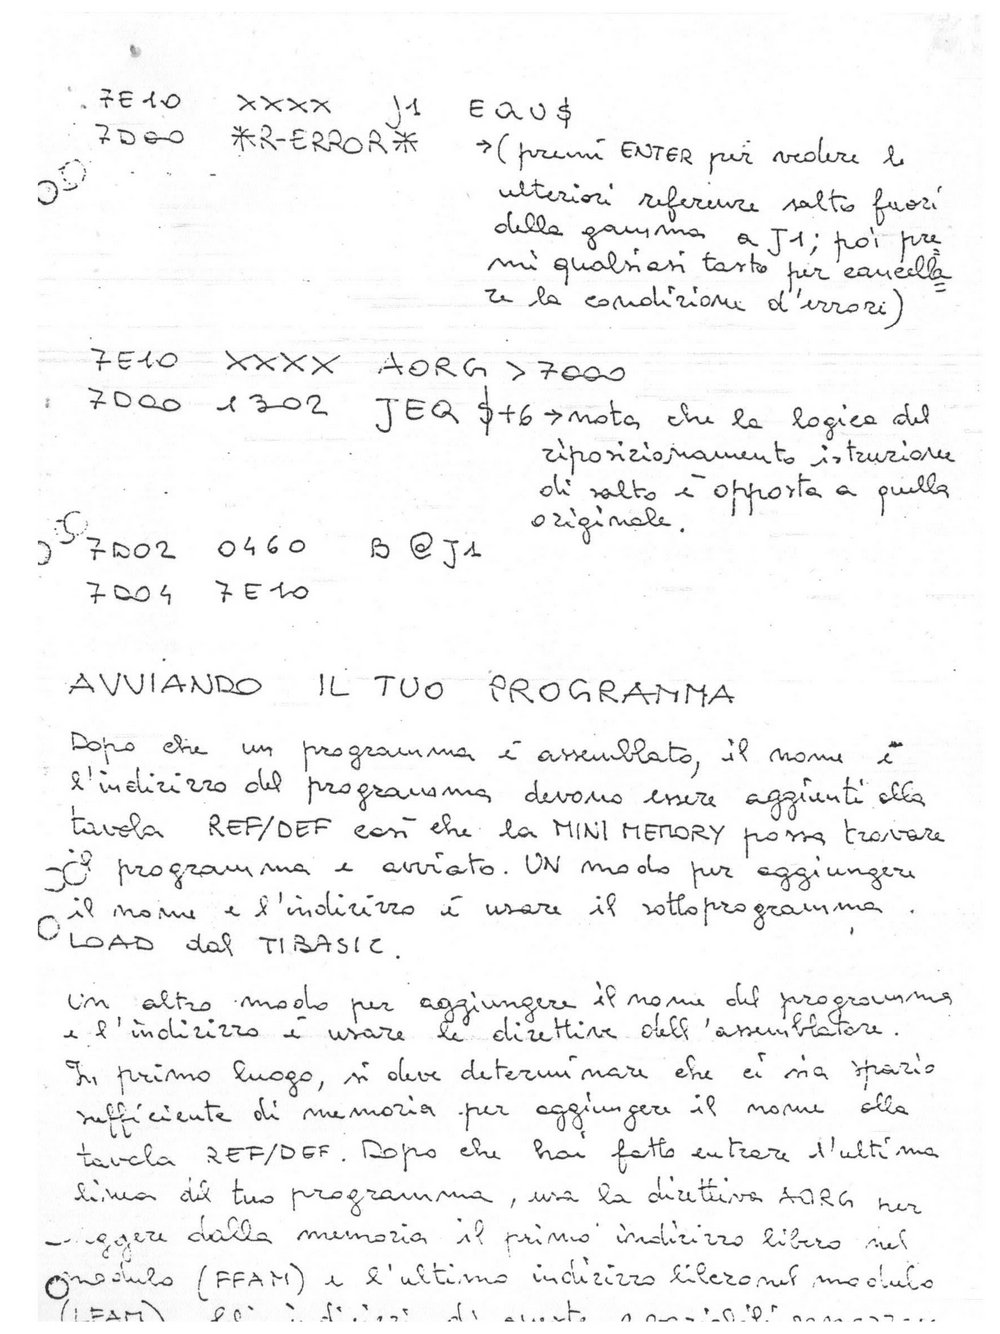 7E10 XXXX J1 EQU $
7D00 *R-ERROR*
→ (premi ENTER per vedere le
ulteriori referenze salto fuori
della gamma a J1; poi pre
mi qualsiasi tasto per cancella
re la condizione d'errori)
7E10 XXXX AORG >7000
7D00 1302 JEQ $+6 → nota che la logica del
riposizionamento istruzione
di salto è opposta a quella
originale.
7D02 0460 B @J1
7D04 7E10
AVVIANDO IL TUO PROGRAMMA
Dopo che un programma è assemblato, il nome e
l'indirizzo del programma devono essere aggiunti alla
tavola REF/DEF così che la MINI MEMORY possa trovare
il programma e avviato. UN modo per aggiungere
il nome e l'indirizzo è usare il sottoprogramma
LOAD dal TIBASIC.
Un altro modo per aggiungere il nome del programma
e l'indirizzo è usare le direttive dell'assemblatore.
In primo luogo, si deve determinare che ci sia spazio
sufficiente di memoria per aggiungere il nome alla
tavola REF/DEF. Dopo che hai fatto entrare l'ultima
linea del tuo programma, usa la direttiva AORG per
leggere dalla memoria il primo indirizzo libero nel
modulo (FFAM) e l'ultimo indirizzo libero nel modulo
(LFAM)